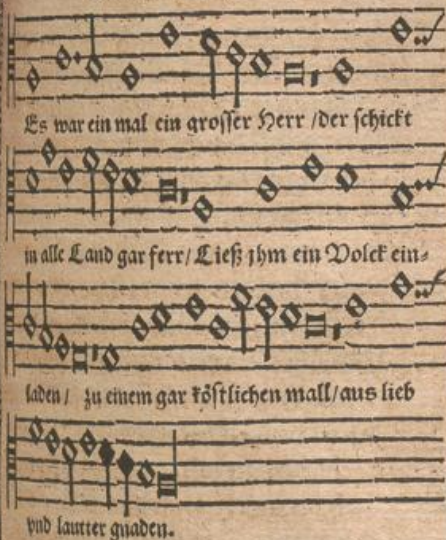 Es war ein mal ein grosser Herr / der schickt
in alle Land gar ferr / Ließ jhm ein Volck ein⸗
laden / zu einem gar köstlichen mall / aus lieb
vnd lautter gnaden.